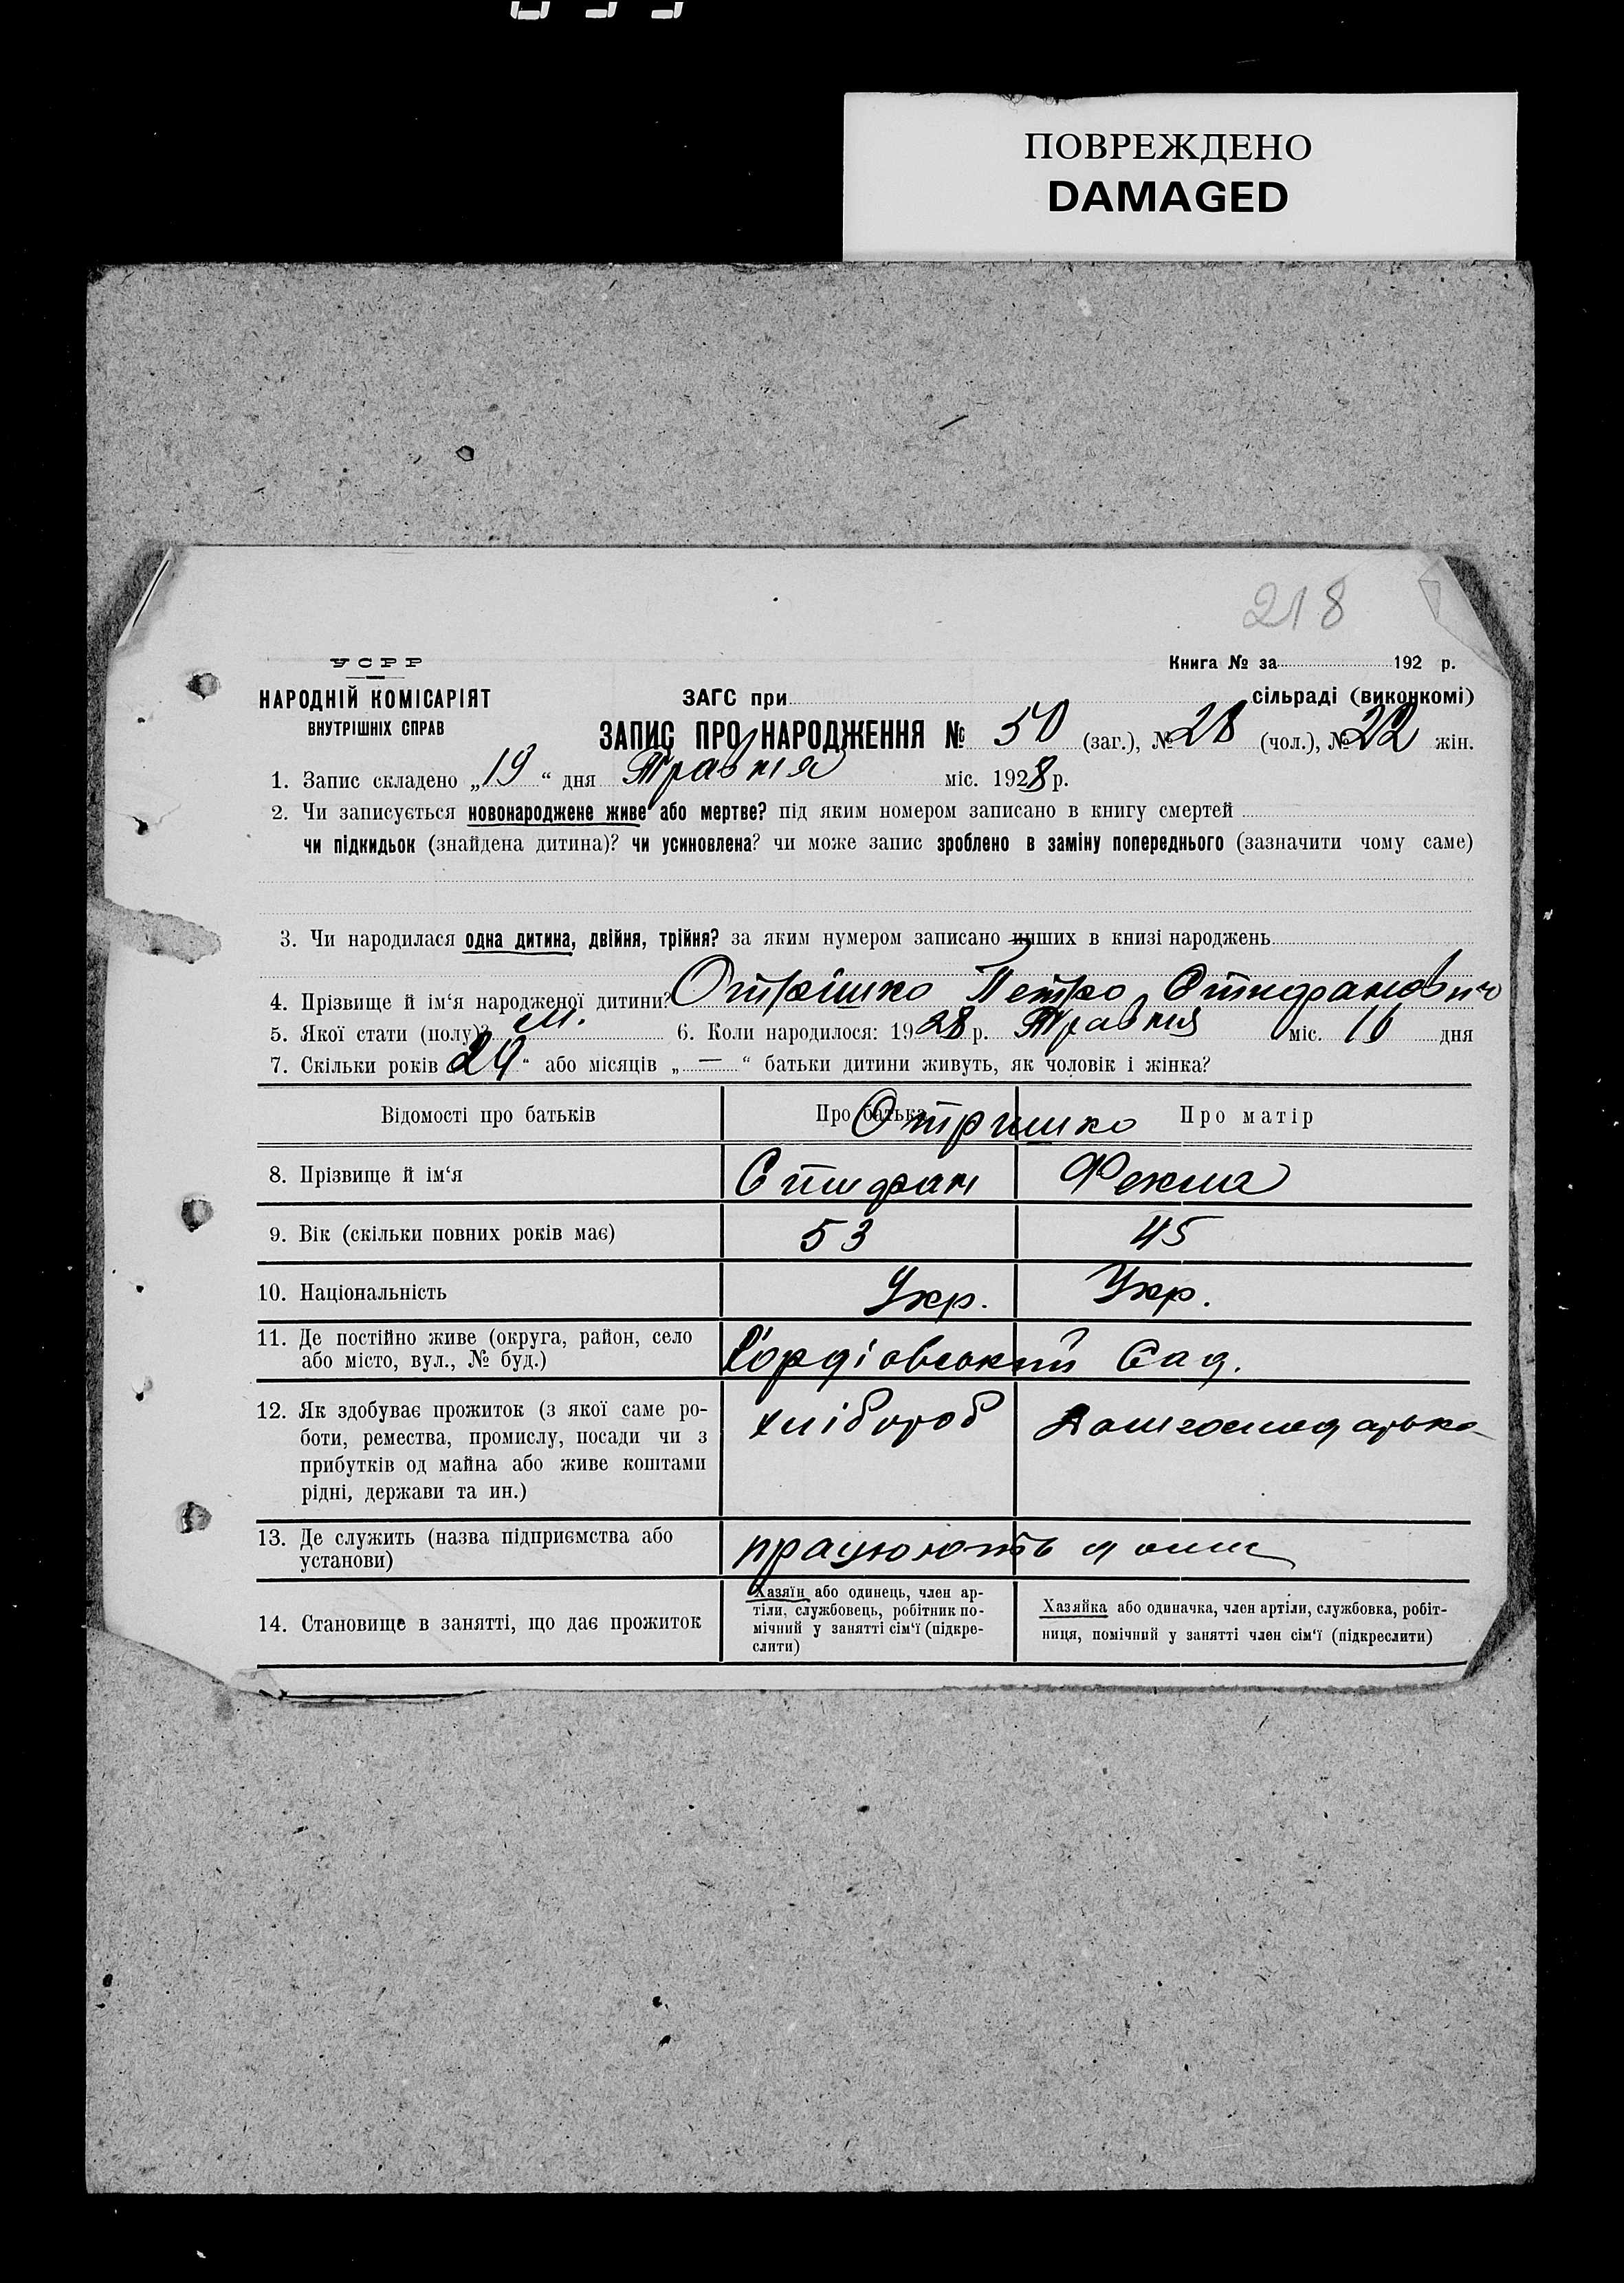 ПОВРЕЖДЕНО
DAMAGED
218
УСРР
Книга № за 192 р.
НАРОДНІЙ КОМІСАРІЯТ
ВНУТРІШНІХ СПРАВ
ЗАГС при сільраді (виконкомі)
ЗАПИС ПРО НАРОДЖЕННЯ № 50 (заг.), № 28 (чол.), № 22 жін.
1. Запис складено „19“ дня Травня міс. 1928 р.
2. Чи записується новонароджене живе або мертве? під яким номером записано в книгу смертей
чи підкидьок (знайдена дитина)? чи усиновлена? чи може запис зроблено в заміну попереднього (зазначити чому саме)
3. Чи народилася одна дитина, двійня, трійня? за яким нумером записано инших в книзі народжень
4. Прізвище й ім‘я народженої дитини? Отрішко Петро
5. Якої стати (полу)? м. 6. Коли народилося: 1928 р. Травня міс. 16 дня
7. Скільки років 29“ або місяців „—“ батьки дитини живуть, як чоловік і жінка?
Відомості про батьків
Про батька
Про матір
Отришко
8. Прізвище й ім‘я
Фекла
9. Вік (скільки повних років має)
53
45
10. Національність
Укр.
Укр.
11. Де постійно живе (округа, район, село
або місто, вул., № буд.)
Сад.
12. Як здобуває прожиток (з якої саме ро-
боти, ремества, промислу, посади чи з
прибутків од майна або живе коштами
рідні, держави та ин.)
хлібороб
13. Де служить (назва підприємства або
установи)
працюють дома
14. Становище в занятті, що дає прожиток
Хазяїн або одинець, член ар-
тіли, службовець, робітник по-
мічний у занятті сім‘ї (підкре-
слити)
Хазяйка або одиначка, член артіли, службовка, робіт-
ниця, помічний у занятті член сім‘ї (підкреслити)